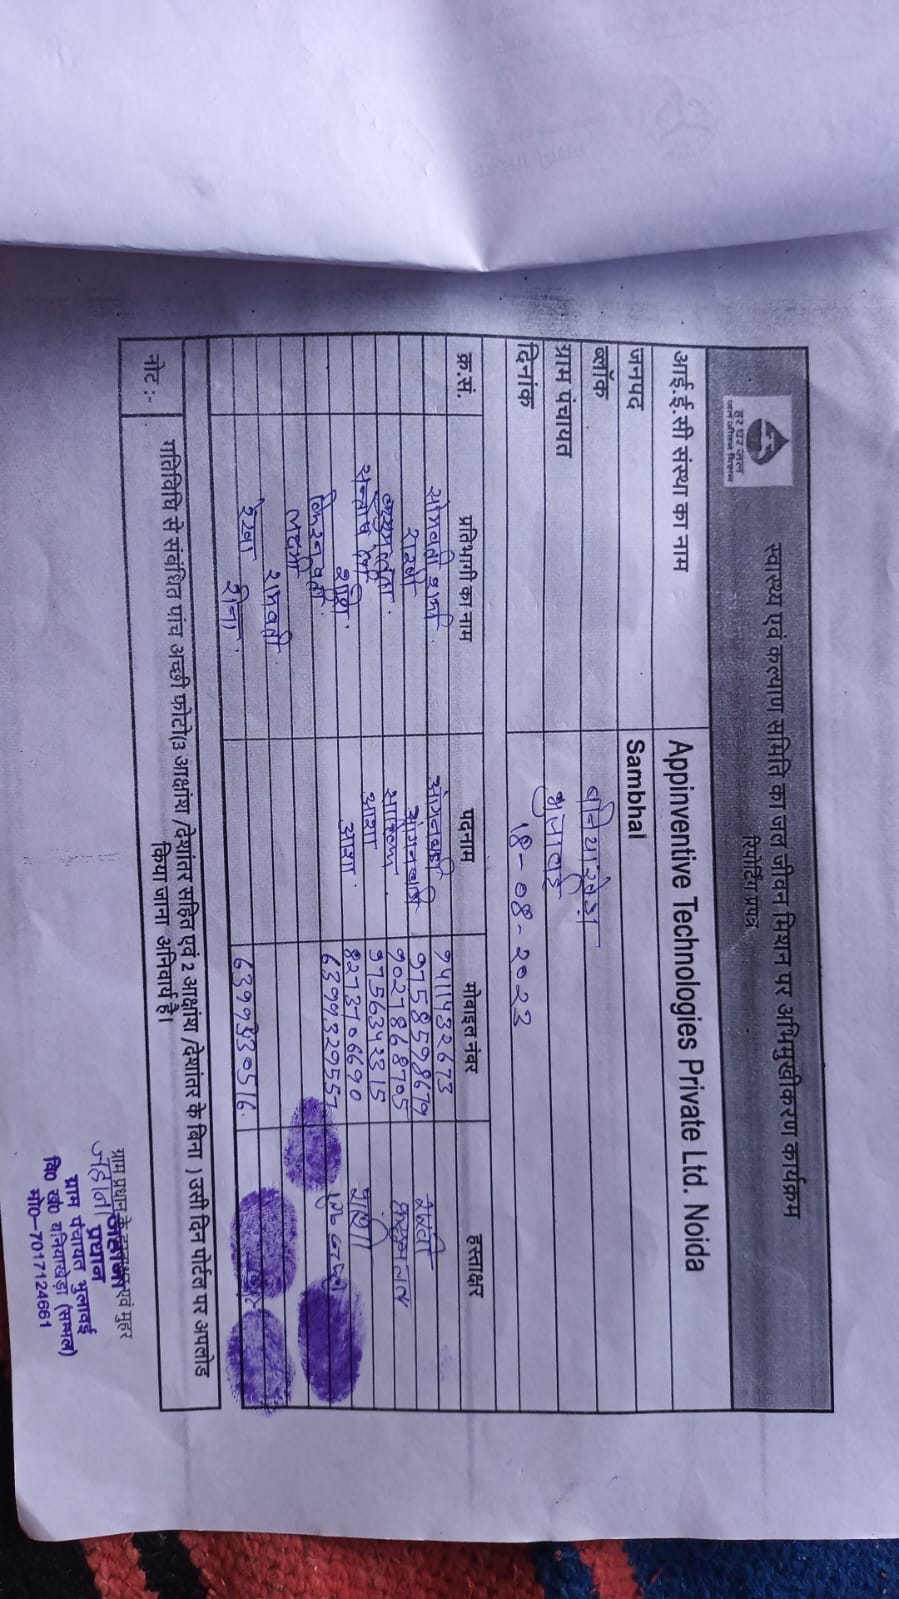 हर घर जल
जल जीवन मिशन
स्वास्थ्य एवं कल्याण समिति का जल जीवन मिशन पर अभिमुखीकरण कार्यक्रम
रिपोर्टिंग प्रपत्र
आई.ई.सी संस्था का नाम Appinventive Technologies Private Ltd. Noida
जनपद Sambhal
ब्लॉक बनियाखेड़ा
ग्राम पंचायत भुलावई
दिनांक 18-08-2023
क्र.सं. प्रतिभागी का नाम पदनाम मोबाइल नंबर हस्ताक्षर
सोमवती शर्मा आंगनबाड़ी 9411432673
आंगनबाड़ी 9758598679
9027868705
सन्तोष आशा 9756342315
शशि आशा 8273706690 शशि
6399329557
लक्ष्मी
रामवती
रेखा 6399330516
रीना
नोट :- गतिविधि से संबंधित पांच अच्छी फोटो(3 आक्षांश /देशांतर सहित एवं 2 आक्षांश /देशांतर के बिना ) उसी दिन पोर्टल पर अपलोड
किया जाना अनिवार्य है।
ग्राम प्रधान के हस्ताक्षर एवं मुहर
प्रधान
ग्राम पंचायत भुलावई
वि0 ख0 बनियाखेड़ा (सम्भल)
मो0-7017124661